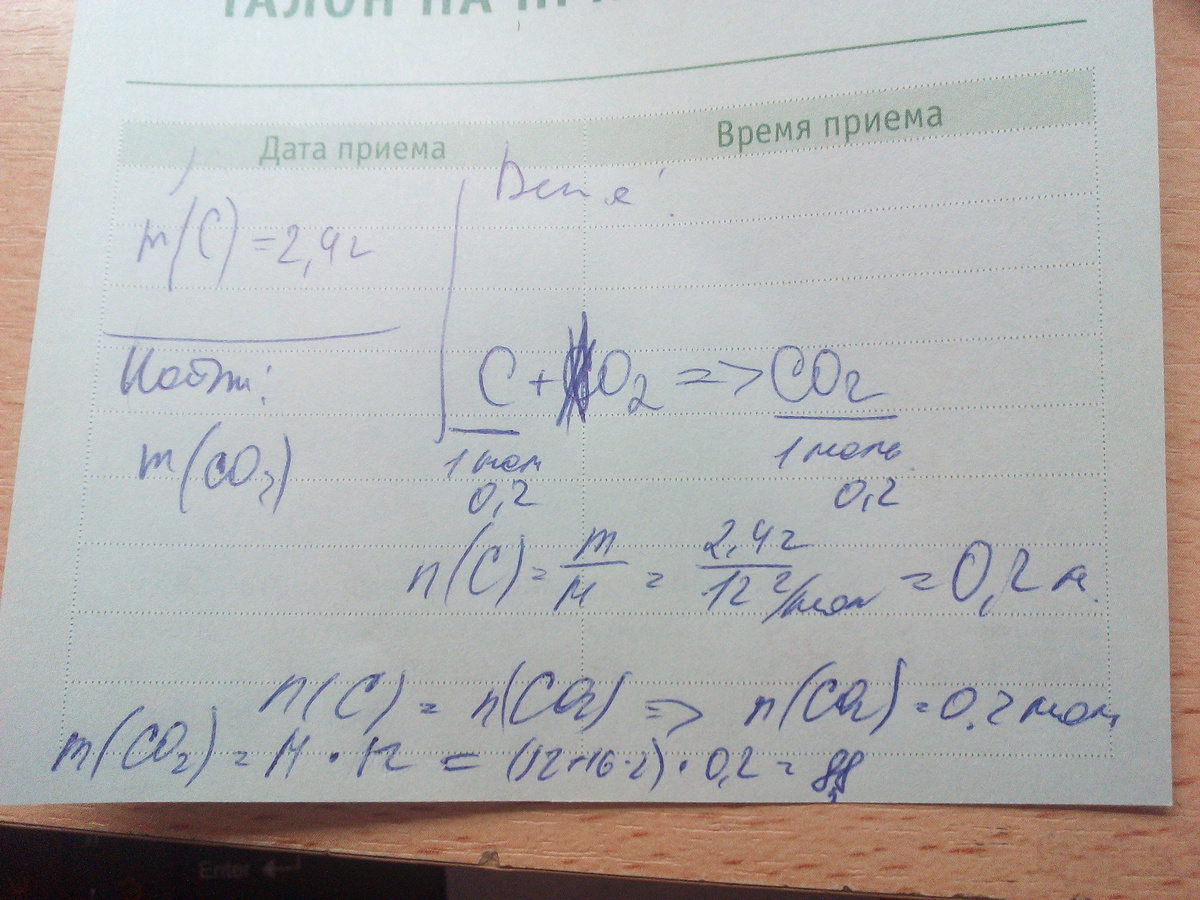 ТАЛОН НА
Дата приема
Время приема
m(C) = 2,4г
Найти:
m(CO2)
C + O2 => CO2
1 мол 1 моль
0,2 0,2
n(C) = m/M = 2,4г / 12 г/мол = 0,2 м.
n(C) = n(CO2) => n(CO2) = 0,2 мол
m(CO2) = M · n = (12+16·2) · 0,2 = 8,8
Enter